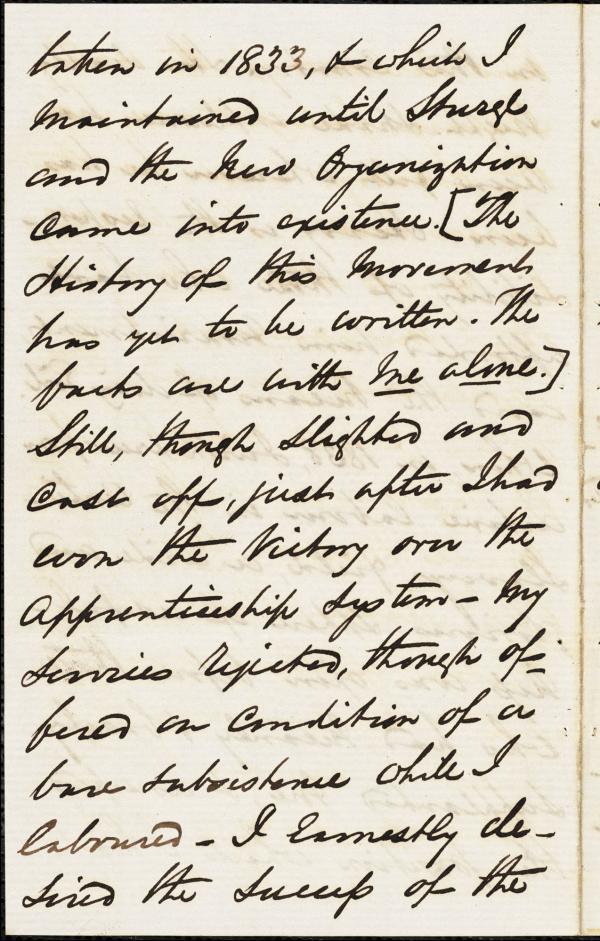 taken in 1833, & which I
maintained until Sturge
and the New Organization
came into existence. [The
History of this Movement
has yet to be written. The
facts are with me alone.]
Still, though slighted and
cast off, just after I had
won the Victory over the
Apprenticeship System – My
services rejected, though of-
fered on condition of a
bare subsistence while I
laboured – I earnestly de-
sired the success of the